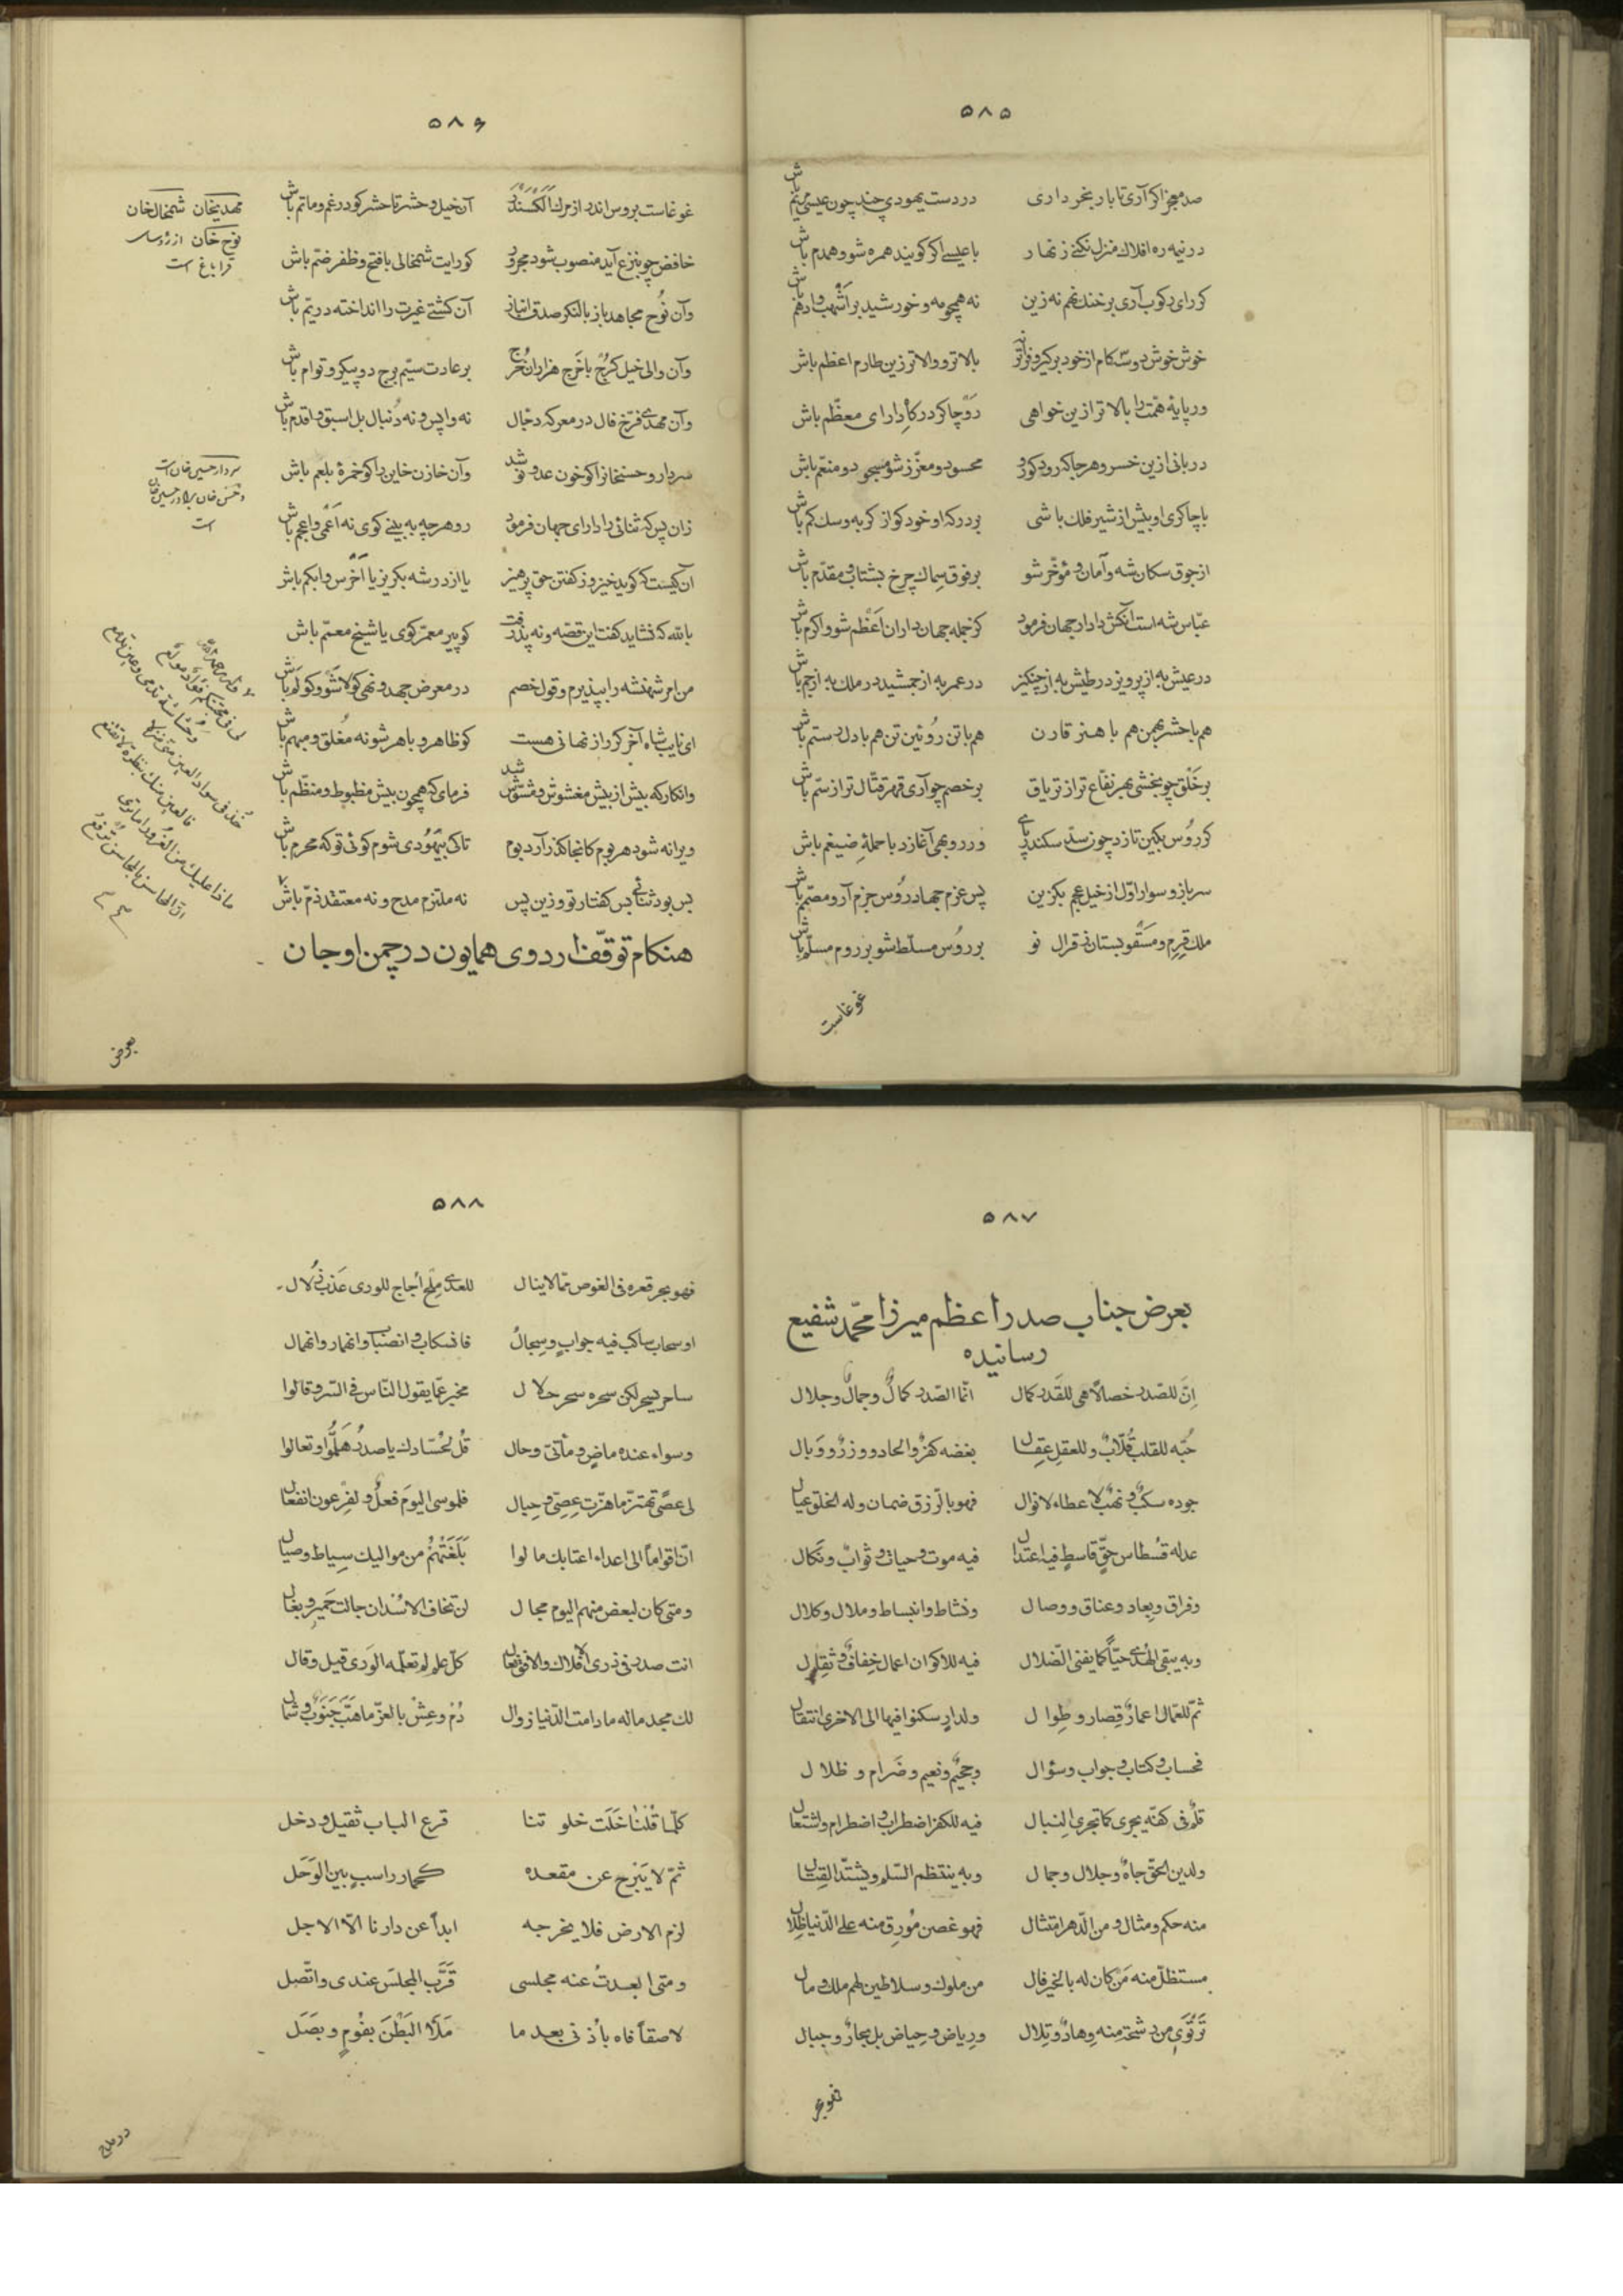 ۵۸۵
صد معجز اکر آری تا بار بخر داری در دست یهودی چند چون عیسی مریم باش
در نیمه ره افلاک منزل نکنے زنهار با عیسے اکر کویند همره شو و همدم باش
کر رای رکوب آری برخنک نهم نه زین نه همچو مه و خورشید بر اشهب و ادهم باش
خوش خوش دو سه کام از خود برکیر و فراتر بالاتر و والاتر زین طارم اعظم باش
ور پایهٔ همّت را بالاتر ازین خواهی رو چاکر درکاه دارای معظّم باش
دربانی ازین خسرو هر جا که رود کو رو محسود و معزّز شو مسجود و منعّم باش
با چاکری او بیش از شیر فلک باشی بر درکه او خود کو از کربه و سک کم باش
از جوق سکان شه و آمان و مؤخّر شو بر فوق سماک چرخ بشتاب و مقدّم باش
عبّاس شه است آنکش دادار جهان فرمود کز جمله جهان داران اعظم شو و اکرم باش
در عیش به از پرویز در طیش به از چنکیز در عمر به از جمشید در ملک به از جم باش
هم با حشر بهمن هم با هنر قارن هم با تن روئین تن هم با دل رستم باش
بر خلق چو بخشی بهر نفّاع تر از تریاق بر خصم چو آری قهر قتّال تر از سم باش
کر روس بکین تازد چون سدّ سکندر پای ور روبهی آغازد با حملهٔ ضیغم باش
سرباز و سوار اوّل از خیل عجم بکزین پس عزم جهاد روس جزم آر و مصمّم باش
ملک قرم و مسقو بستان ز قرال نو بر روس مسلّط شو بر روم مسلّم باش
غوغاست
۵۸۶
غوغاست بروس اندر از مرک الکسندر آن خیل و حشر تا حشر کو در غم و ماتم باش
خافض چو بنزع آید منصوب شود مجرور کو رایت شمخالی با فتح و ظفر ضم باش
وآن نوح مجاهد باز با لنکر صدق انباز آن کشتے غیرت را انداخته در یم باش
وآن والی خیل کرج با خرج هزاران خرج بر عادت سیّم برج دو پیکر و توام باش
وآن مهدی فرّخ فال در معرکه دجّال نه واپس و نه دنبال بل اسبق و اقدم باش
سردار و حسنخان را کو خون عدو نو شد وآن خازن خاین را کو خمرهٔ بلعم باش
زان پس که ثنائی را دارای جهان فرمود رو هر چه به بینے کوی نه اعمی و اعجم باش
آن کیست که کوید خیز وز کفتن حق پرهیز یا از در شه بکریز یا اخرس و ابکم باش
بالله که نشاید کفت این قصّه و نه پذرفت کو پیر معمّر کوی یا شیخ معمّم باش
من امر شهنشه را بپذیرم و قول خصم در معرض جهد و نهی کو لا شو و کو لم باش
ای نایب شاه آخر کر راز نهانی هست کو ظاهر و باهر شو نه مغلق و مبهم باش
وانکار که بیش از بیش مغشوش و مشوّش شد فرمای که همچون بیش مظبوط و منظّم باش
ویرانه شود هر بوم کانجا کذر آرد بوم تا کی بیهودی شوم کوئی تو که محرم باش
بس بود ثنائی بس کفتار تو و زین پس نه ملتزم مدح و نه معتقد ذمّ باش
هنکام توقّف اردوی همایون در چمن اوجان
مهدیخان شمخالخان
نوح خان از رؤسای
قراباغ است
سردار حسین خان است
و حسن خان برادر حسین خان
است
بعرض
۵۸۷
بعرض جناب صدر اعظم میرزا محمّد شفیع
رسانیده
انّ للصّدر خصالًا هی للقدر کمال انّما الصّدر کمالٌ وجمالٌ وجلال
حبّه للقلب قلّابٌ وللعقل عقال بغضه کفرٌ والحاد ووزرٌ ووبال
جوده سکبٌ ونهبٌ لا عطاء لا نوال فهو بالرّزق ضمان وله الخلق عیال
عدله قسطاس حقٍّ قاسطٍ فیه اعتدال فیه موت وحیات وثوابٌ ونکال
وفراق وبعاد وعناق ووصال ونشاط وانبساط وملال وکلال
وبه یبقی الهدی حیّاً کما یفنی الضّلال فیه للاکوان اعمال خفافٌ وثقال
ثمّ للعمّال اعمارٌ قصار وطوال ولدارٍ سکنوا فیها الی الاخری انتقال
فحساب وکتاب وجواب وسؤال وجحیم ونعیم وضرام وظلال
قلمٌ فی کفّه یجری کما تجری النبال فیه للکفر اضطراب واضطرام واشتعال
ولدین الحقّ جاهٌ وجلال وجمال وبه ینتظم السّلم ویشتدّ القتال
منه حکم ومثال ومن الدّهر امتثال فهو غصن مورق منه علی الدّنیا ظلال
مستظلّ منه من کان له بالخیر فال من ملوک وسلاطین لهم ملک ومال
ترتوی من رشحةٍ منه وهادٌ وتلال وریاض وحیاض بل بحارٌ وجبال
فهو بحر
۵۸۸
فهو بحر قعره فی الغوص ممّا لا ینال للعدی ملح أجاج للوری عذب زلال
او سحاب ساکب فیه جوابٍ وسجالُ فانسکاب وانصباب وانهمار وانهمال
ساحر یسحر لکن سحره سحر حلال مخبر عمّا یقول النّاس فی السّر وقالوا
وسواء عنده ماضٍ ومأتیّ وحال قل لحسّادک یا صدر هلمّوا وتعالوا
لی عصًی تهتزّ ما هزّت عصِیّ وحبال فلموسی الیوم فعلٌ ولفرعون انفعال
انّ اقواماً الی اعداء اعتابک مالوا بلغتهم من موالیک سیاط وصیال
ومتی کان لبعض منهم الیوم مجال لن تخاف الاسْد ان جالت حمیر وبغال
انت صدر فی ذری الافلاک والافق تعال کلّ علم لم تعلّمه الوری قیل وقال
لک مجد ماله مادامت الدّنیا زوال دُم وعِش بالعزّ ما هبّت جنوبٌ وشمال
کلّما قلنا خلت خلوتنا قرع الباب ثقیل ودخل
ثمّ لا یبرح عن مقعده کحمار راسب بین الوحل
لزم الارض فلا یخرجه ابداً عن دارنا الّا الاجل
ومتی ابعدتُ عنه مجلسی قرّب المجلس عندی واتّصل
لاصقاً فاه بأذنی بعد ما ملأ البطن بفومٍ وبصل
در مدح